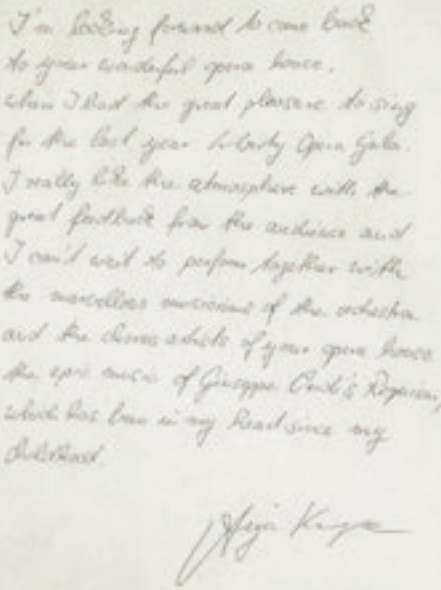 I'm looking forward to come back
to your wonderful opera house,
when I had the great pleasure to sing
for the last year Liberty Opera Gala.
I really like the atmosphere with the
great feedback from the audience and
I can't wait to perform together with
the marvellous musicians of the orchestra
and the chorus artists of your opera house
the epic music of Giuseppe Verdi's Requiem,
which has been in my heart since my
childhood.